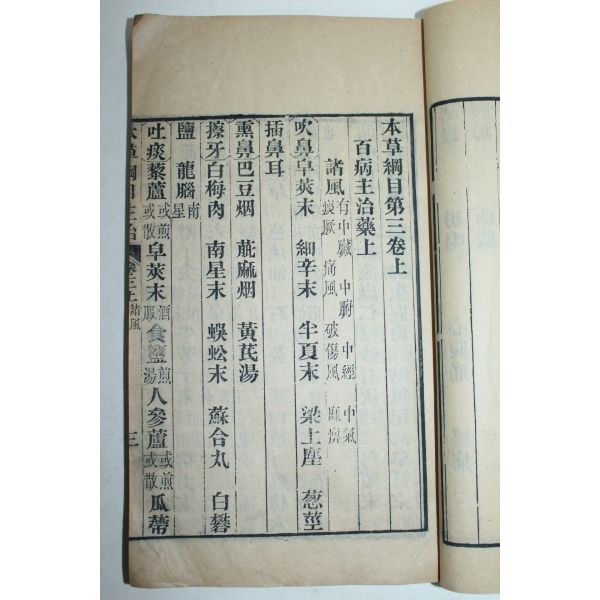 本草綱目第三卷上
百病主治藥上
諸風 有中臟 中腑 中經 中氣
痰厥 痛風 破傷風 麻痹
吹鼻 皁莢末 細辛末 半夏末 梁上塵 葱莖
插鼻耳
熏鼻 巴豆烟 萞麻烟 黃芪湯
擦牙 白梅肉 南星末 蜈蚣末 蘇合丸 白礬
鹽 龍腦 南星
吐痰 藜蘆 或煎或散 皁莢末 酒服 食鹽 煎湯 人參蘆 或煎或散 瓜蒂
本草綱目主治 卷三上 諸風 三